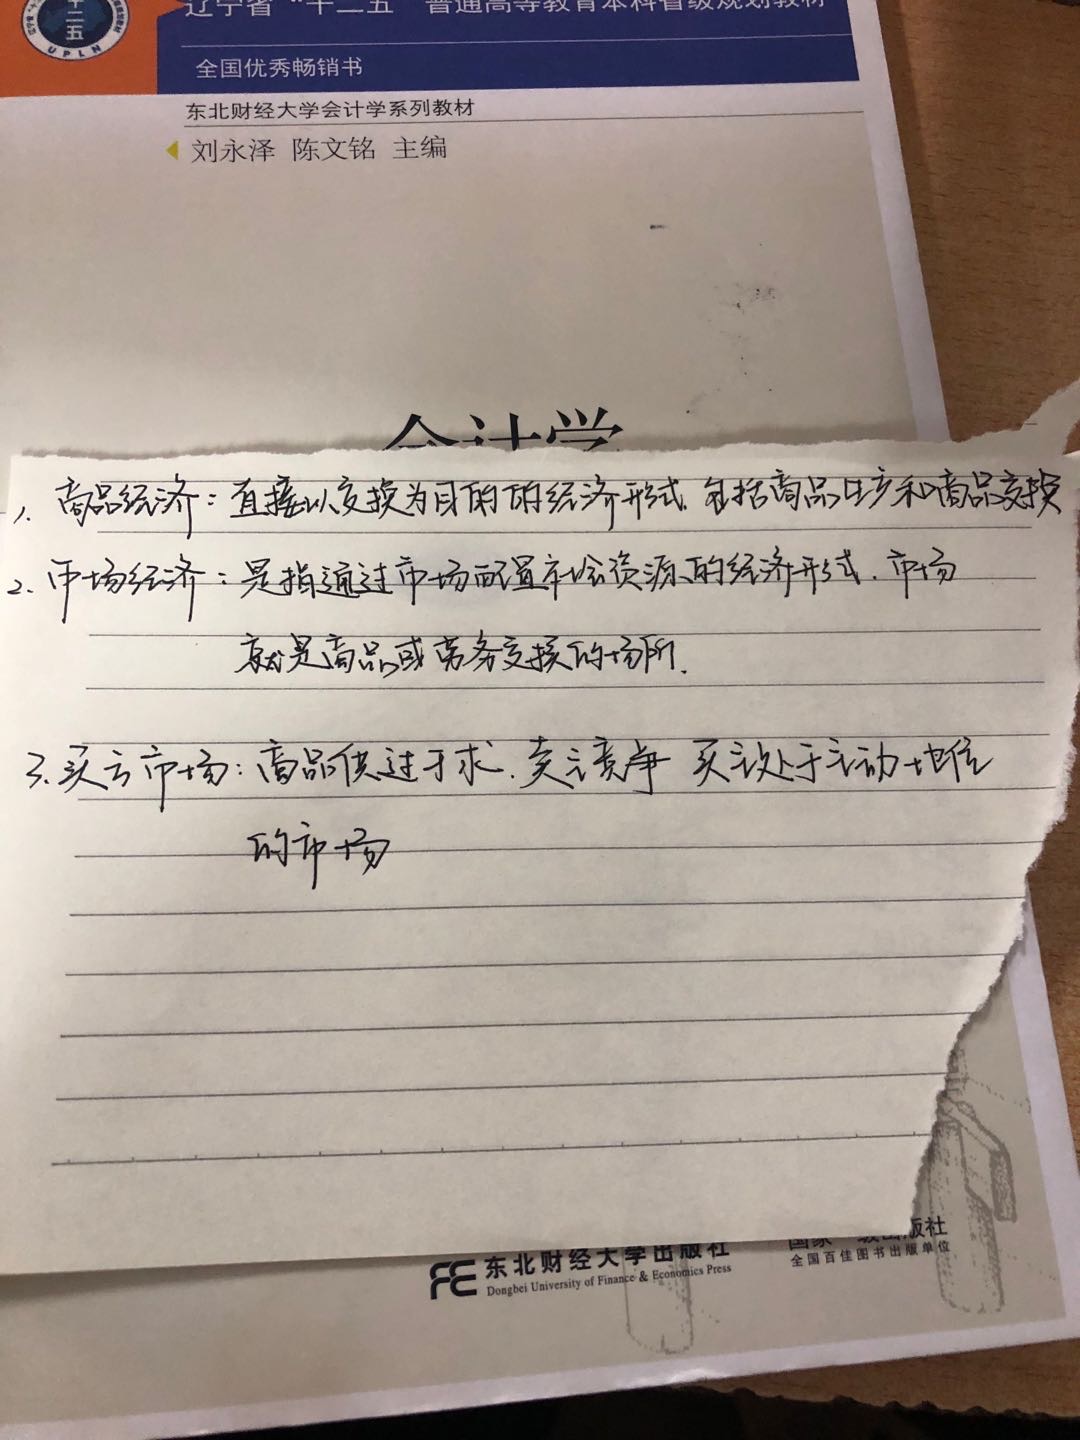 辽宁省“十二五”普通高等教育本科省级规划教材
十二五
UPLN
全国优秀畅销书
东北财经大学会计学系列教材
刘永泽 陈文铭 主编
会计学
1、商品经济：直接以交换为目的的经济形式.包括商品生产和商品交换
2、市场经济：是指通过市场配置社会资源的经济形式.市场
就是商品或劳务交换的场所.
3.买方市场：商品供过于求.卖方竞争 买方处于主动地位
的市场
东北财经大学出版社
Dongbei University of Finance & Economics Press
国家一级出版社
全国百佳图书出版单位